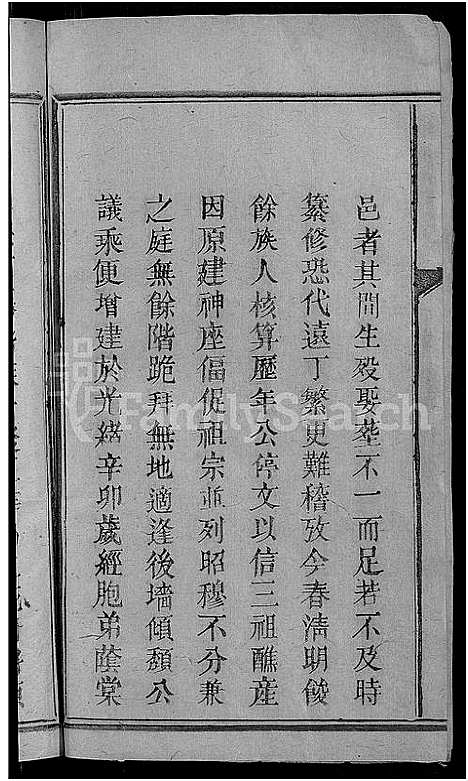 邑者其間生殁娶塟不一而足若不及時
纂修恐代遠丁繁更難稽攷今春清明餕
餘族人核算歷年公停文以信三祖醮產
因原建神座偪促祖宗並列昭穆不分兼
之庭無餘階跪拜無地適逢後墻傾頽公
議乘便增建於光緒辛卯歲經胞弟蔭棠
FamilySearch